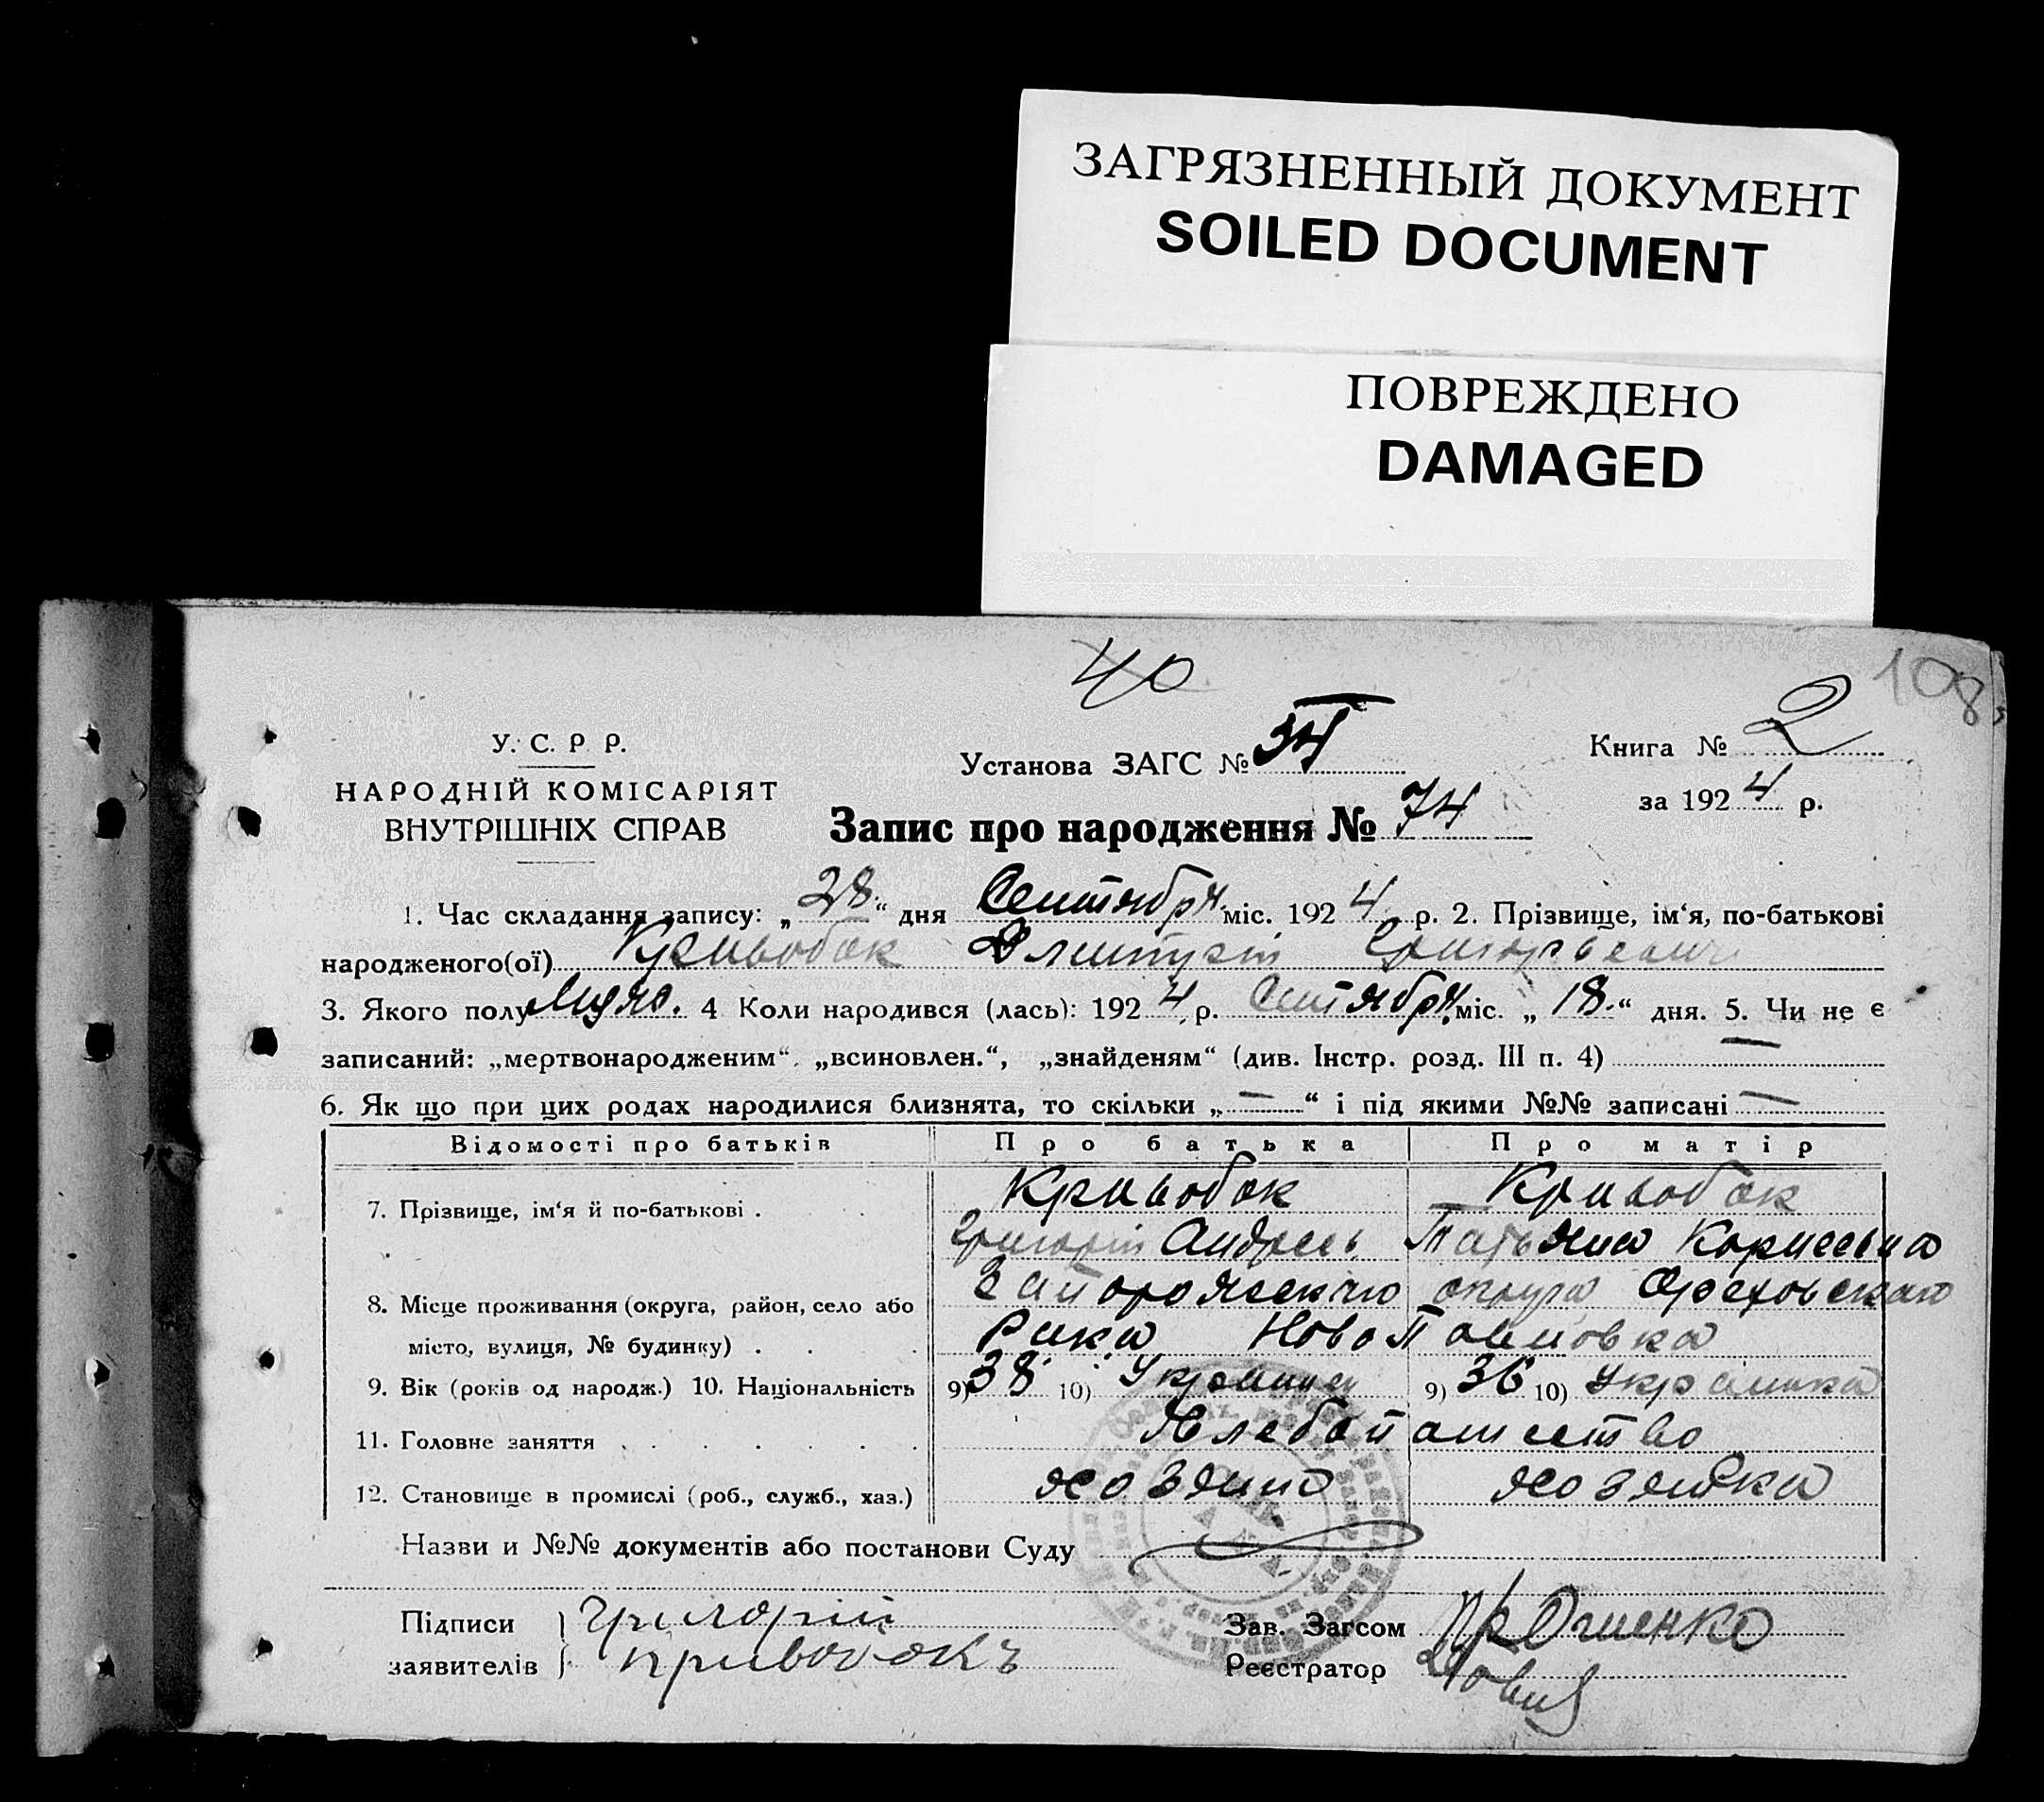 ЗАГРЯЗНЕННЫЙ ДОКУМЕНТ
SOILED DOCUMENT
ПОВРЕЖДЕНО
DAMAGED
40
108
У. С. Р. Р.
НАРОДНІЙ КОМІСАРІЯТ
ВНУТРІШНІХ СПРАВ
Установа ЗАГС №
Книга № 2
за 1924 р.
Запис про народження № 74
1. Час складання запису: „28“ дня Сентября міс. 1924 р. 2. Прізвище, ім‘я, по-батькові
народженого(ої) Кривобок Григорьевич
3. Якого полу Муж. 4 Коли народився (лась): 1924 р. Сентября міс. „18“ дня. 5. Чи не є
записаний: „мертвонародженим“, „всиновлен.“, „знайденям“ (див. Інстр. розд. III п. 4) —
6. Як що при цих родах народилися близнята, то скільки „—“ і під якими №№ записані —
Відомості про батьків Про батька Про матір
7. Прізвище, ім‘я й по-батькові . Кривобок Кривобок
Григорій Андреев Татьяна Корнеевна
8. Місце проживання (округа, район, село або Запорожского округа Ореховского
місто, вулиця, № будинку) . . . Рика Ново
9. Вік (років од народж.) 10. Національність 9) 38 10) Украинец 9) 36 10) Украинка
11. Головне заняття . . . . . . Хлебопашество
12. Становище в промислі (роб., служб., хаз.) хозяин хозяйка
Назви и №№ документів або постанови Суду
Підписи Григорій
заявителів Кривобокъ
Зав. Загсом
Реєстратор